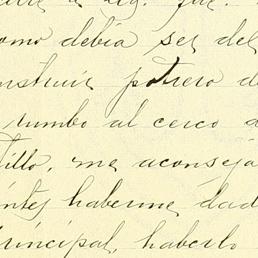 como debía ser del
nstruir potrero de
rumbo al cerco
illo, me aconseja
haberme dad
rincipal, haberlo